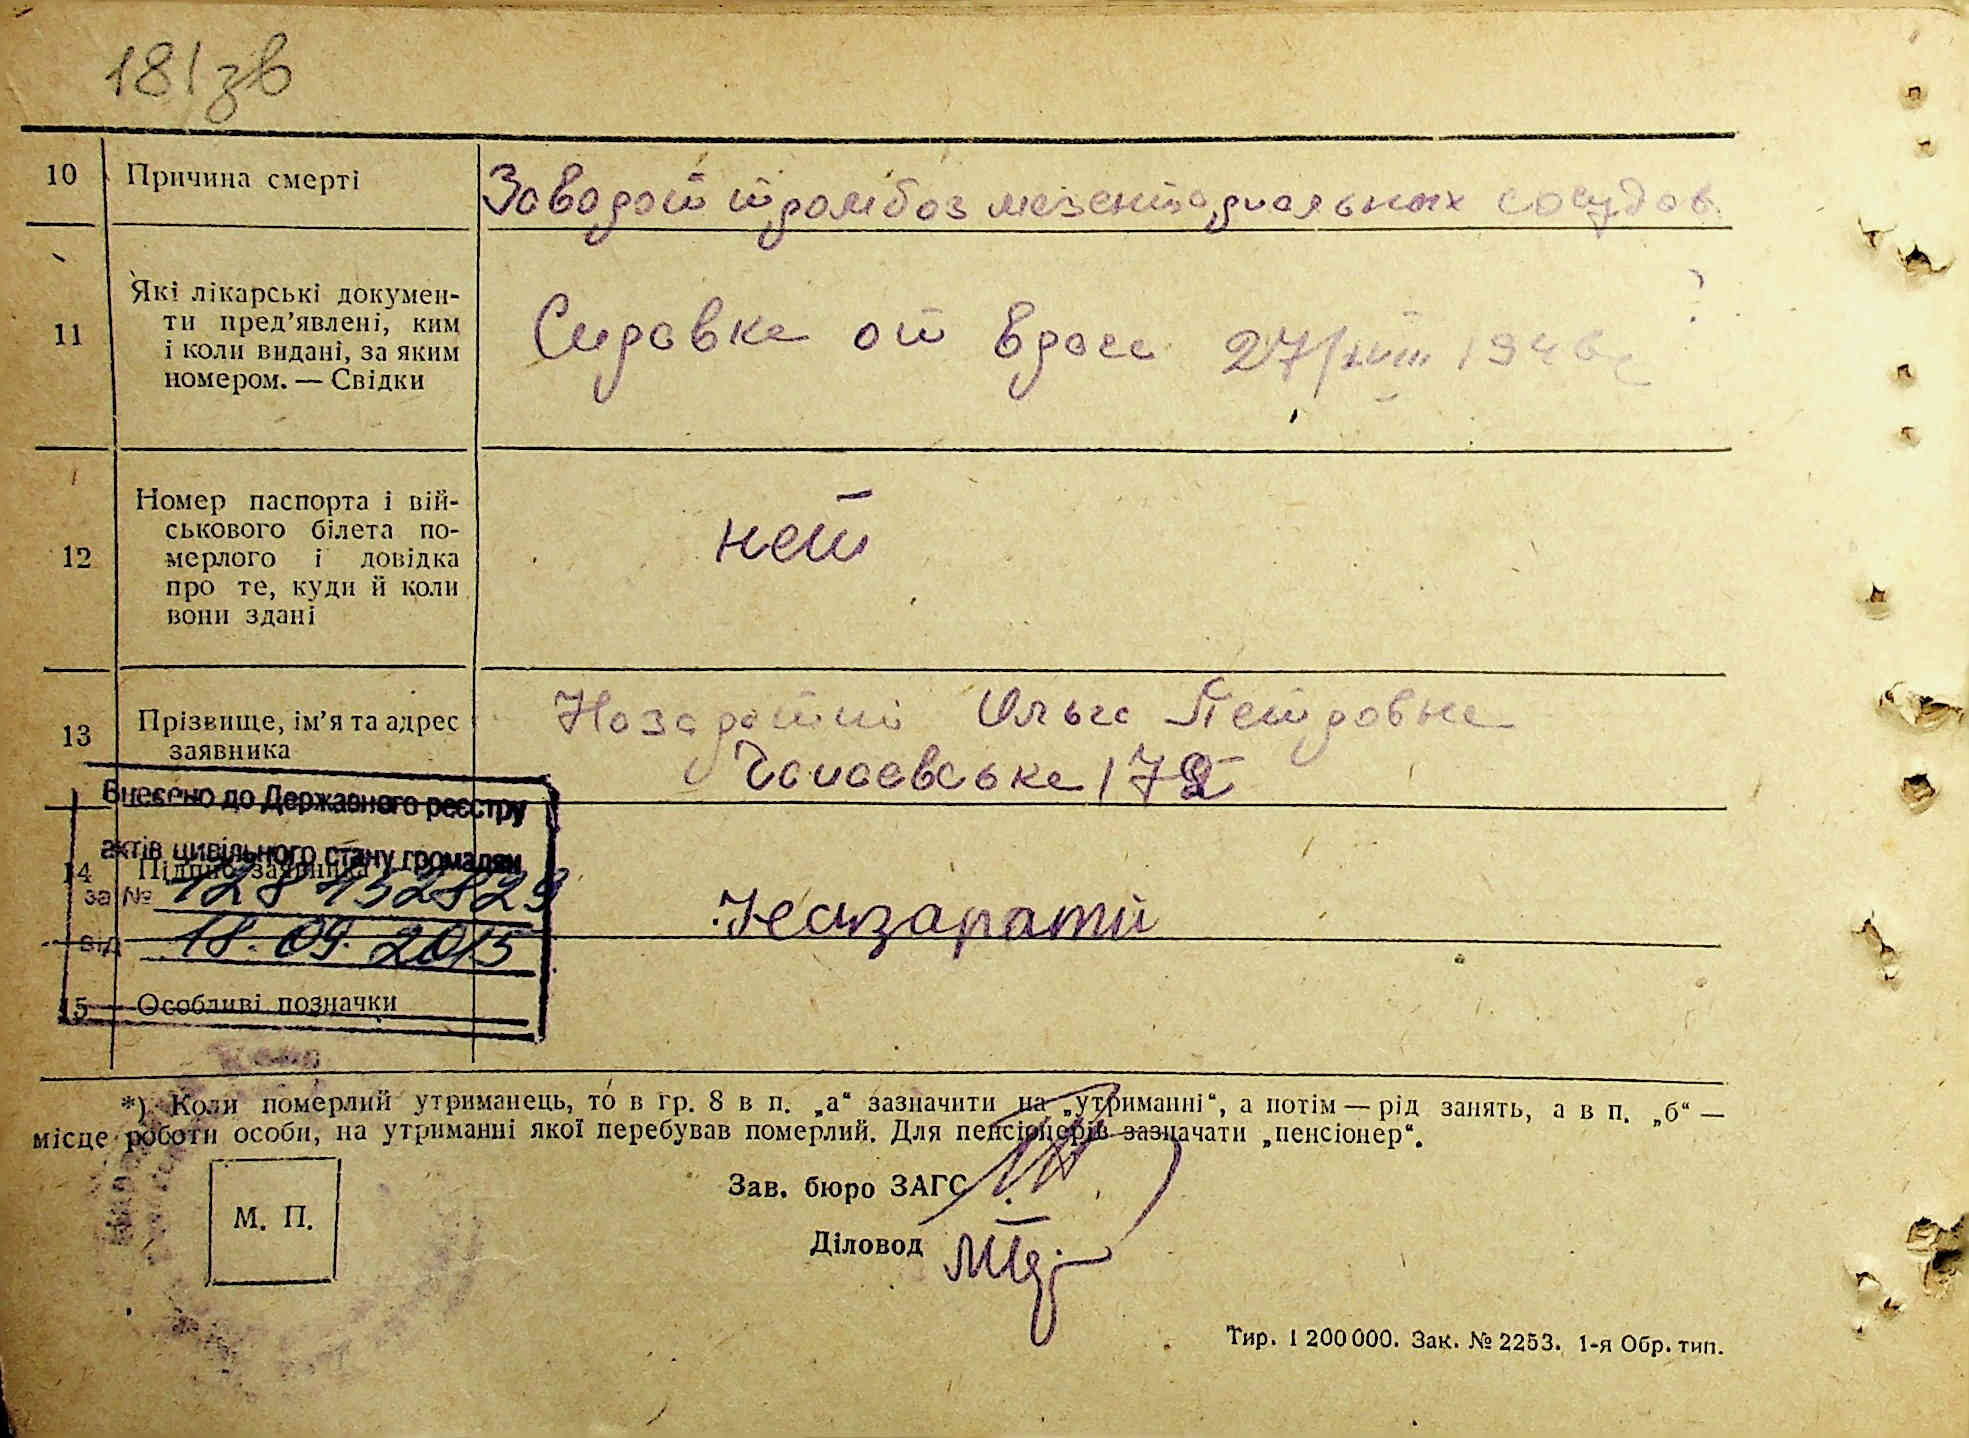 181зв
10 Причина смерті
Заворот тромбоз мезентериальных сосудов
11 Які лікарські докумен-
ти пред’явлені, ким
і коли видані, за яким
номером. — Свідки
Справка от врача 27/VIII 1946г
12 Номер паспорта і вій-
ськового білета по-
мерлого і довідка
про те, куди й коли
вони здані
нет
13 Прізвище, ім’я та адрес
заявника
Ольга Петровна
172
Внесено до Державного реєстру
актів цивільного стану громадян
14 Підпис заявника
за №
від 18.09.2015
15 Особливі позначки
*) Коли померлий утриманець, то в гр. 8 в п. „а“ зазначити на „утриманні“, а потім — рід занять, а в п. „б“ —
місце роботи особи, на утриманні якої перебував померлий. Для пенсіонерів зазначати „пенсіонер“.
Зав. бюро ЗАГС
М. П.
Діловод
Тир. 1 200 000. Зак. № 2253. 1-я Обр. тип.